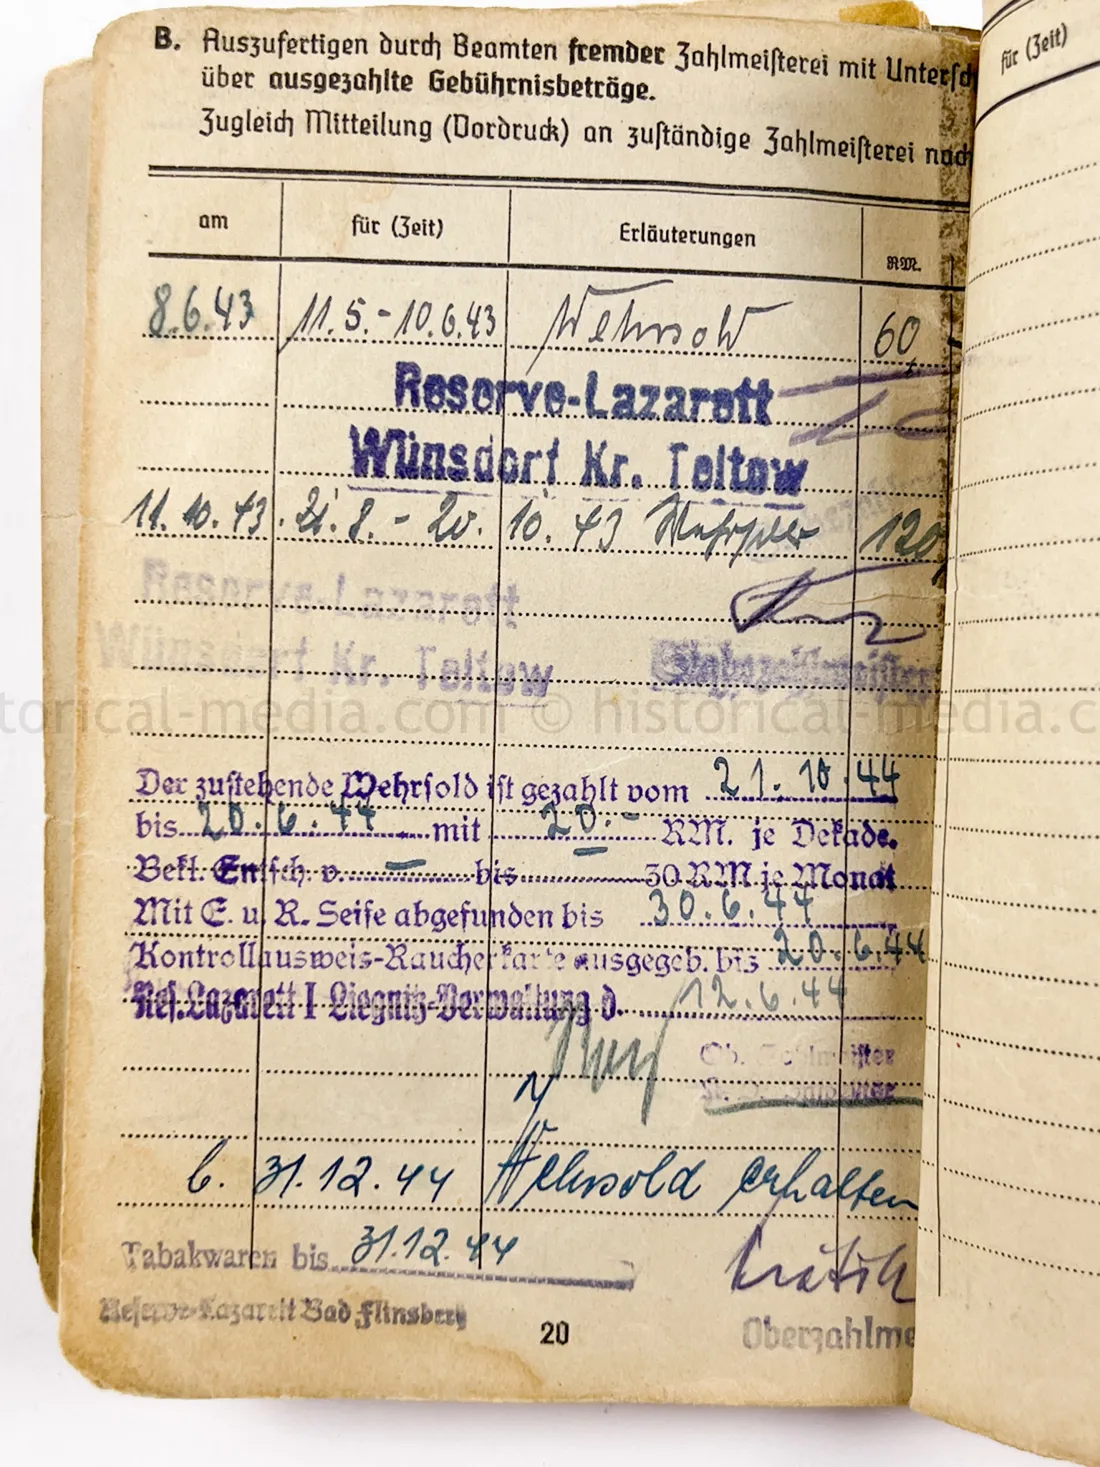 B. Auszufertigen durch Beamten fremder Zahlmeisterei mit Untersch
über ausgezahlte Gebührnisbeträge.
Zugleich Mitteilung (Vordruck) an zuständige Zahlmeisterei nach
für (Zeit)
am für (Zeit) Erläuterungen RM.
8.6.43 11.5.-10.6.43 Wehrsold 60,-
Reserve-Lazarett
Wünsdorf Kr. Teltow
11.10.43. 21.8.-20.10.43 120,
Reserve-Lazarett
Wünsdorf Kr. Teltow
Stabszahlmeister
historical-media.com © historical-media.c
Der zustehende Wehrsold ist gezahlt vom 21.10.44
bis 20.6.44 mit 20.- RM. je Dekade.
Bekl. Entsch. v. — bis 30 RM je Monat
Mit E. u. R. Seife abgefunden bis 30.6.44
Kontrollausweis-Raucherkarte ausgegeb. bis 20.6.44
Res. Lazarett I Liegnitz-Verwaltung d. 12.6.44
Ob. Zahlmeister
b. 31.12.44 Wehrsold erhalten
Tabakwaren bis 31.12.44
Reserve-Lazarett Bad Flinsberg
20
Oberzahlme